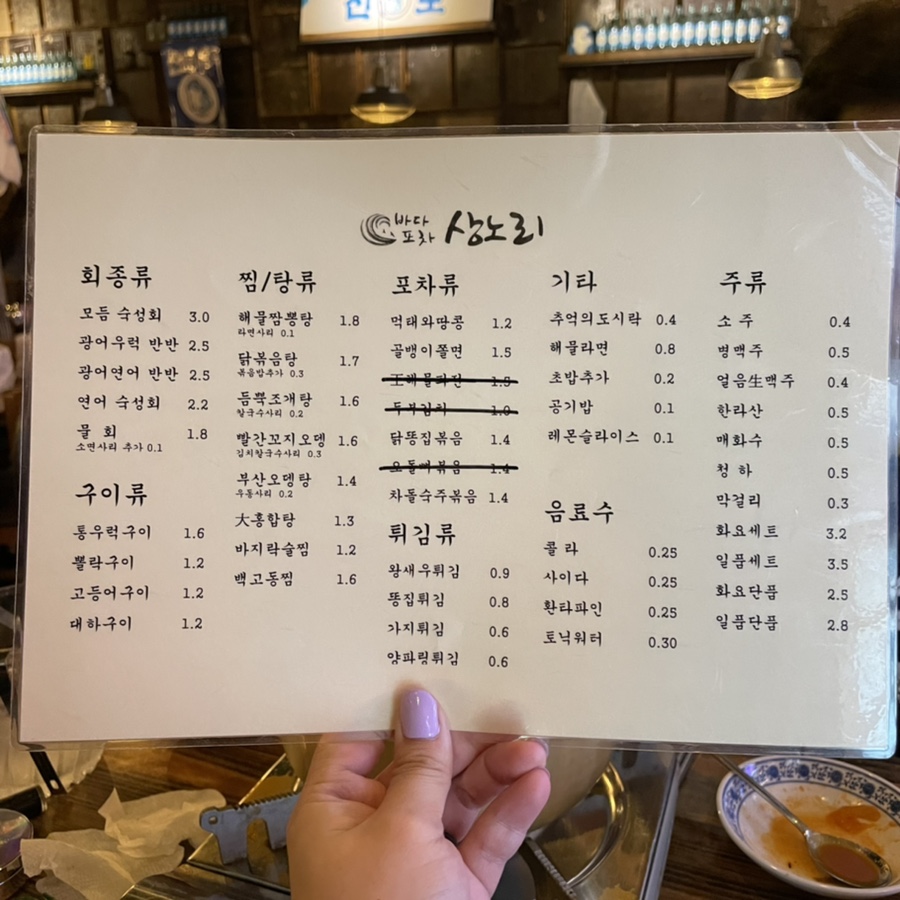 바다
포차 상노리
회종류
모듬 숙성회 3.0
광어우럭 반반 2.5
광어연어 반반 2.5
연어 숙성회 2.2
물 회 1.8
소면사리 추가 0.1
구이류
통우럭구이 1.6
뽈락구이 1.2
고등어구이 1.2
대하구이 1.2
찜/탕류
해물짬뽕탕 1.8
라면사리 0.1
닭볶음탕 1.7
볶음밥추가 0.3
듬뿍조개탕 1.6
칼국수사리 0.2
빨간꼬지오뎅 1.6
김치칼국수사리 0.3
부산오뎅탕 1.4
우동사리 0.2
大홍합탕 1.3
바지락술찜 1.2
백고동찜 1.6
포차류
먹태와땅콩 1.2
골뱅이쫄면 1.5
왕해물파전 1.5
두부김치 1.0
닭똥집볶음 1.4
오돌뼈볶음 1.4
차돌숙주볶음 1.4
튀김류
왕새우튀김 0.9
똥집튀김 0.8
가지튀김 0.6
양파링튀김 0.6
기타
추억의도시락 0.4
해물라면 0.8
초밥추가 0.2
공기밥 0.1
레몬슬라이스 0.1
음료수
콜 라 0.25
사이다 0.25
환타파인 0.25
토닉워터 0.30
주류
소 주 0.4
병맥주 0.5
얼음生맥주 0.4
한라산 0.5
매화수 0.5
청 하 0.5
막걸리 0.3
화요세트 3.2
일품세트 3.5
화요단품 2.5
일품단품 2.8